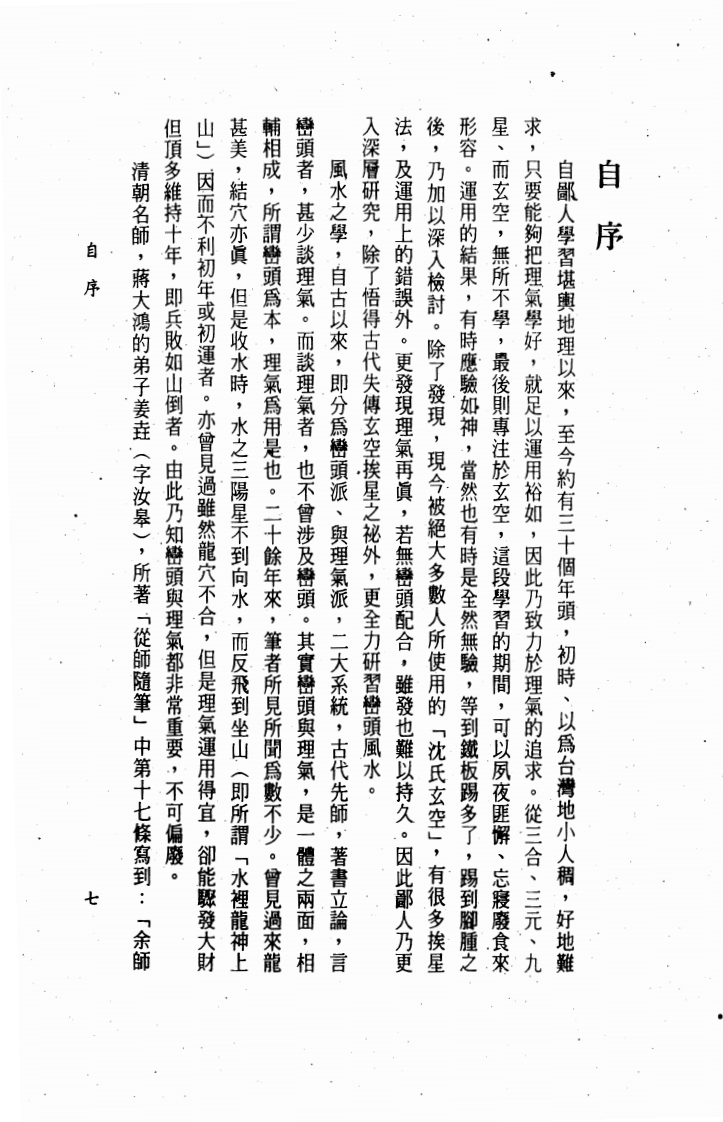 自序
自鄙人學習堪輿地理以來，至今約有三十個年頭，初時、以爲台灣地小人稠，好地難
求，只要能夠把理氣學好，就足以運用裕如，因此乃致力於理氣的追求。從三合、三元、九
星、而玄空，無所不學，最後則專注於玄空，這段學習的期間，可以夙夜匪懈、忘寢廢食來
形容。運用的結果，有時應驗如神，當然也有時是全然無驗，等到鐵板踢多了，踢到腳腫之
後，乃加以深入檢討。除了發現，現今被絕大多數人所使用的「沈氏玄空」，有很多挨星
法，及運用上的錯誤外。更發現理氣再眞，若無巒頭配合，雖發也難以持久。因此鄙人乃更
入深層研究，除了悟得古代失傳玄空挨星之祕外，更全力研習巒頭風水。
風水之學，自古以來，即分爲巒頭派、與理氣派，二大系統，古代先師，著書立論，言
巒頭者，甚少談理氣。而談理氣者，也不曾涉及巒頭。其實巒頭與理氣，是一體之兩面，相
輔相成，所謂巒頭爲本，理氣爲用是也。二十餘年來，筆者所見所聞爲數不少。曾見過來龍
甚美，結穴亦眞，但是收水時，水之三陽星不到向水，而反飛到坐山（即所謂「水裡龍神上
山」）因而不利初年或初運者。亦曾見過雖然龍穴不合，但是理氣運用得宜，卻能驟發大財
但頂多維持十年，即兵敗如山倒者。由此乃知巒頭與理氣都非常重要，不可偏廢。
清朝名師，蔣大鴻的弟子姜垚（字汝皋），所著「從師隨筆」中第十七條寫到：「余師
自序
七